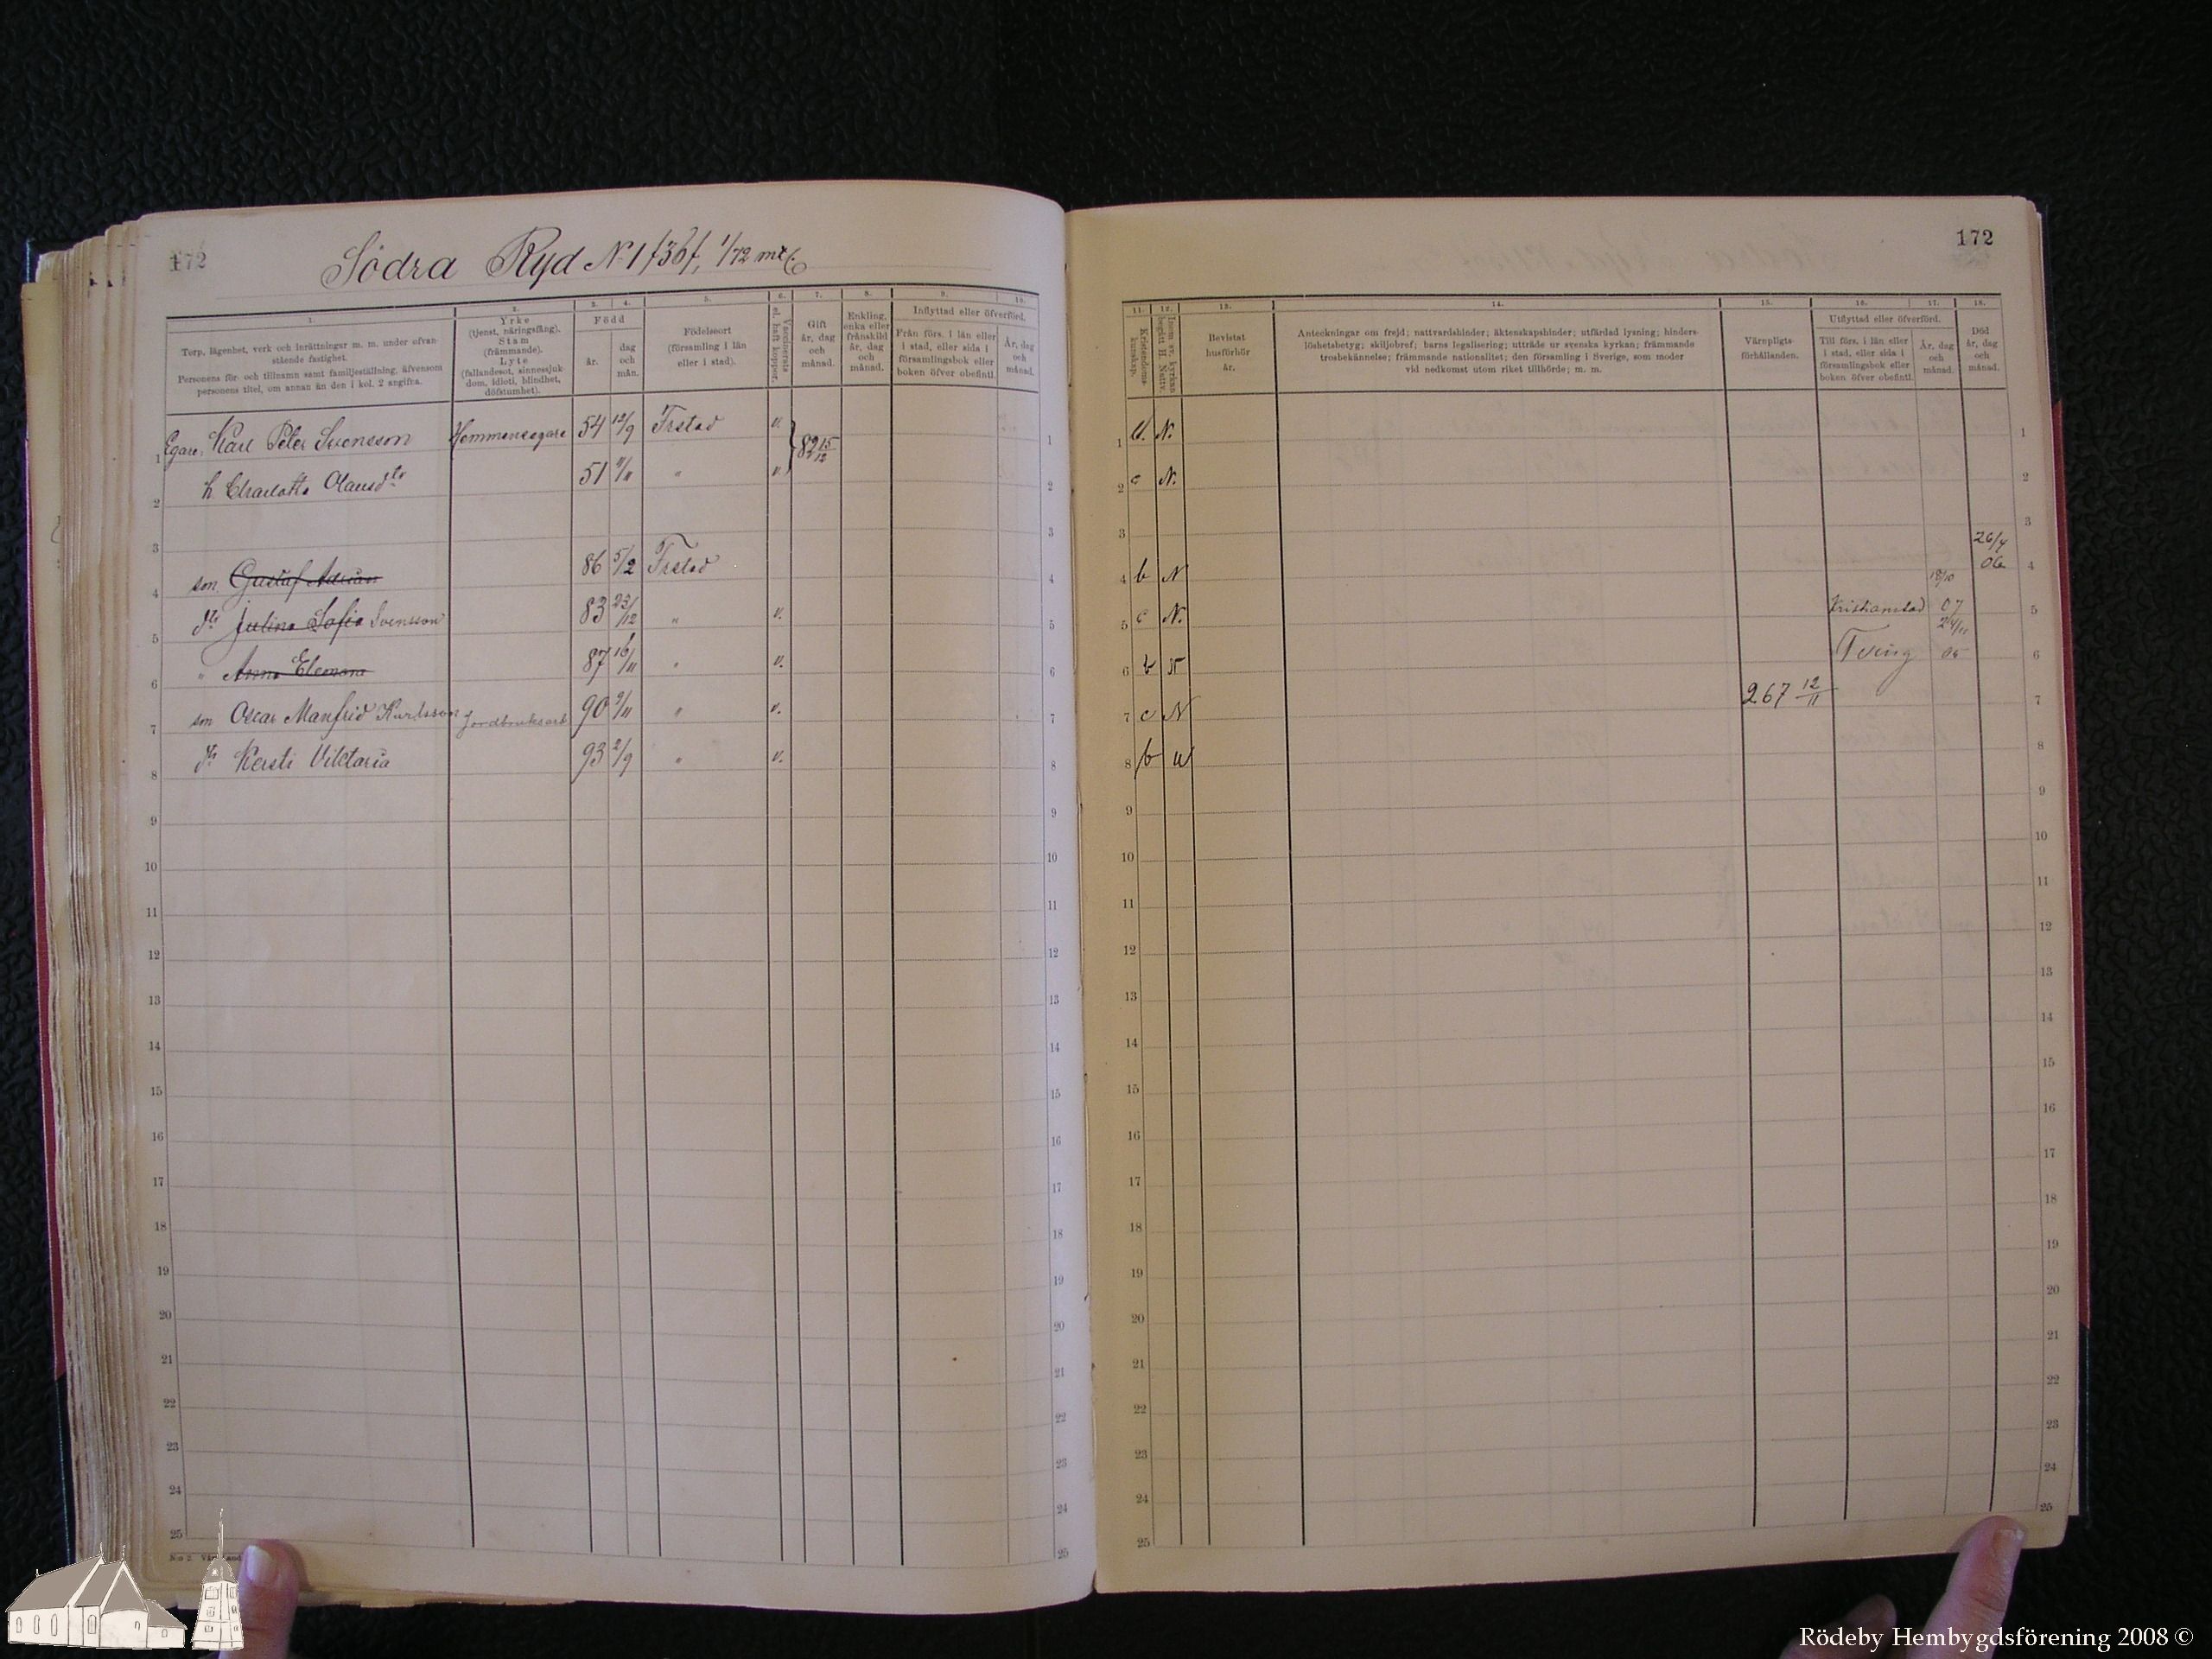 172
Södra Ryd N:1 /36/, 1/72 mtl.
1. 2. 3. 4. 5. 6. 7. 8. 9. 10.
Torp, lägenhet, verk och inrättningar m. m. under ofvan-
stående fastighet.
Personens för- och tillnamn samt familjeställning, äfvensom
personens titel, om annan än den i kol. 2 angifna.
Yrke
(tjenst, näringsfång).
Stam
(främmande).
Lyte
(fallandesot, sinnessjuk-
dom, idioti, blindhet,
döfstumhet).
Född
år.
dag
och
mån.
Födelseort
(församling i län
eller i stad).
Vaccinerats
el. haft koppor.
Gift
år, dag
och
månad.
Enkling,
enka eller
frånskild
år, dag
och
månad.
Inflyttad eller öfverförd.
Från förs. i län eller
i stad, eller sida i
församlingsbok eller
boken öfver obefintl.
År, dag
och
månad.
Egare Karl Peter Svensson Hemmansegare 54 12/9 Frstad v. 82 15/12
h. Charlotta Olausdtr 51 11/11 " v.
son Gustaf Adrian 86 5/2 Frstad
dtr Julina Sofia Svensson 83 23/12 " v.
" Anna Eleonora 87 16/11 " v.
son Oscar Manfrid Karlsson Jordbruksarb 90 2/11 " v.
dtr Kersti Viktoria 93 2/9 " v.
1
2
3
4
5
6
7
8
9
10
11
12
13
14
15
16
17
18
19
20
21
22
23
24
25
172
11. 12. 13. 14. 15. 16. 17. 18.
Kristendoms-
kunskap.
Inom sv. kyrkan
begått H. Nattv.
Bevistat
husförhör
år.
Anteckningar om frejd; nattvardshinder; äktenskapshinder; utfärdad lysning; hinders-
löshetsbetyg; skiljobref; barns legalisering; utträde ur svenska kyrkan; främmande
trosbekännelse; främmande nationalitet; den församling i Sverige, som moder
vid nedkomst utom riket tillhörde; m. m.
Värnpligts-
förhållanden.
Utflyttad eller öfverförd.
Till förs. i län eller
i stad, eller sida i
församlingsbok eller
boken öfver obefintl.
År, dag
och
månad.
Död
år, dag
och
månad.
1 N.
2 c N.
3
4 b N 26/4 06
5 c N. Kristianstad 18/10 07
6 b Tving 24/11 05
7 c N 267 12/11
8 b
9
10
11
12
13
14
15
16
17
18
19
20
21
22
23
24
25
Rödeby Hembygdsförening 2008 ©